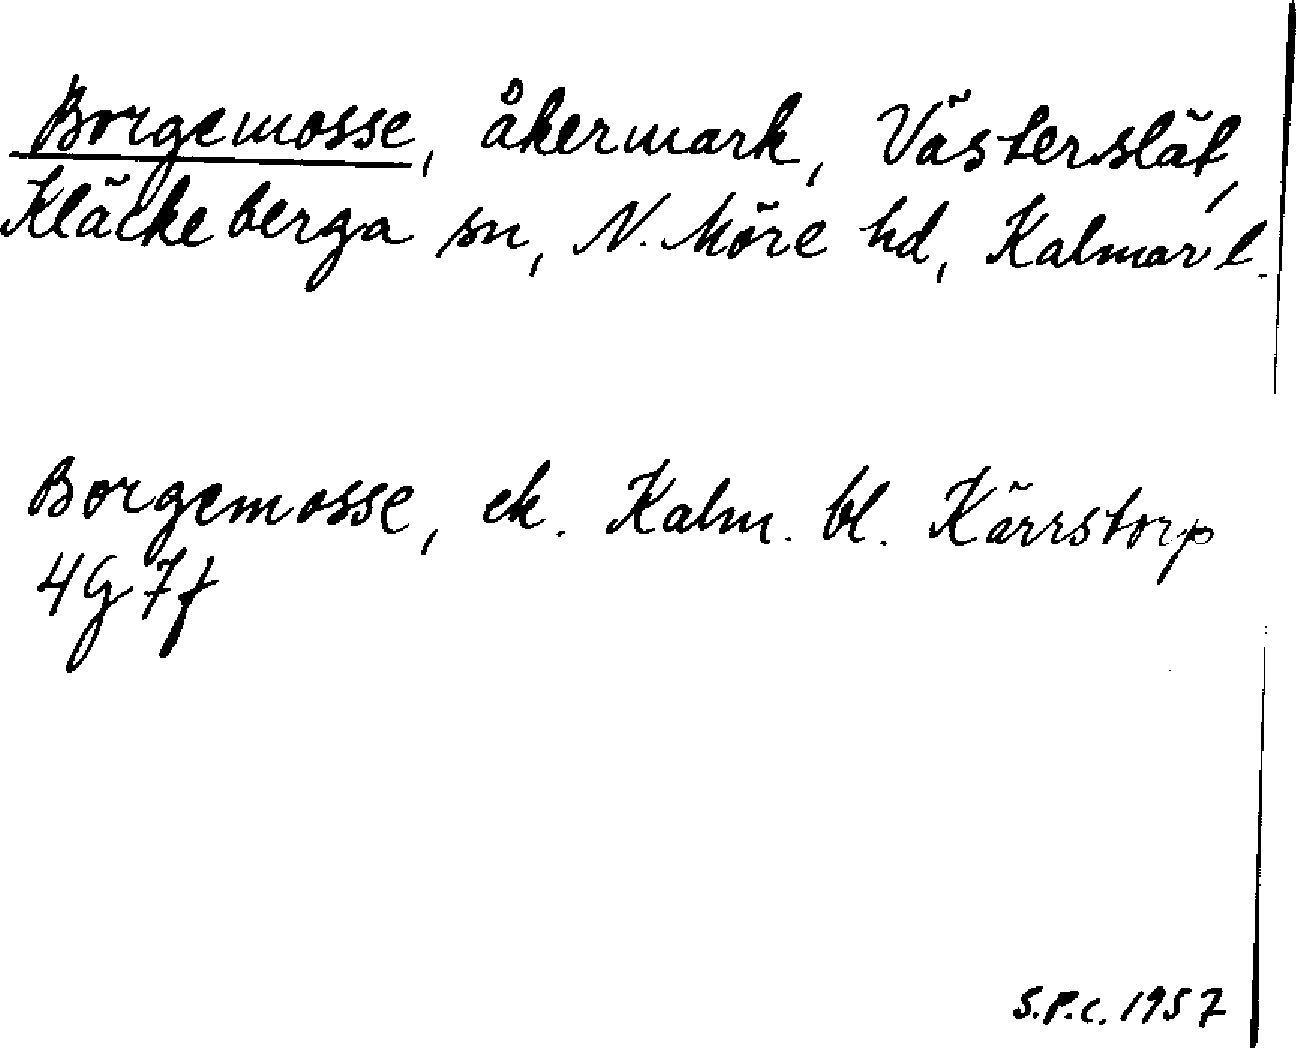 Borgemosse, åkermark, Västerslät,
Kläckeberga sn, N. Möre hd, Kalmar l.
Borgemosse, ek. Kalm. bl. Kärrstorp
4G7f
S.P.C. 1957